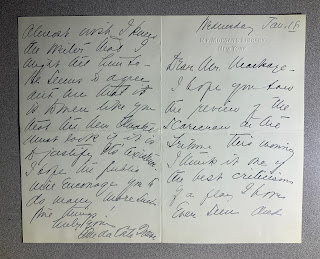 Wednesday Jan. 18
Dear Mr. Mackaye -
I hope you saw
the review of the
Scarecrow in the
Tribune this morning
I think it one of
the best criticisms
of a play I have
ever seen and
almost wish I knew
the writer that I
might tell him so -
He seems to agree
with me that it
is women like you
that the New Theatre
must look if it is
to justify its existence.
I hope the public
will encourage you to
do many more such
fine things.
Truly yours